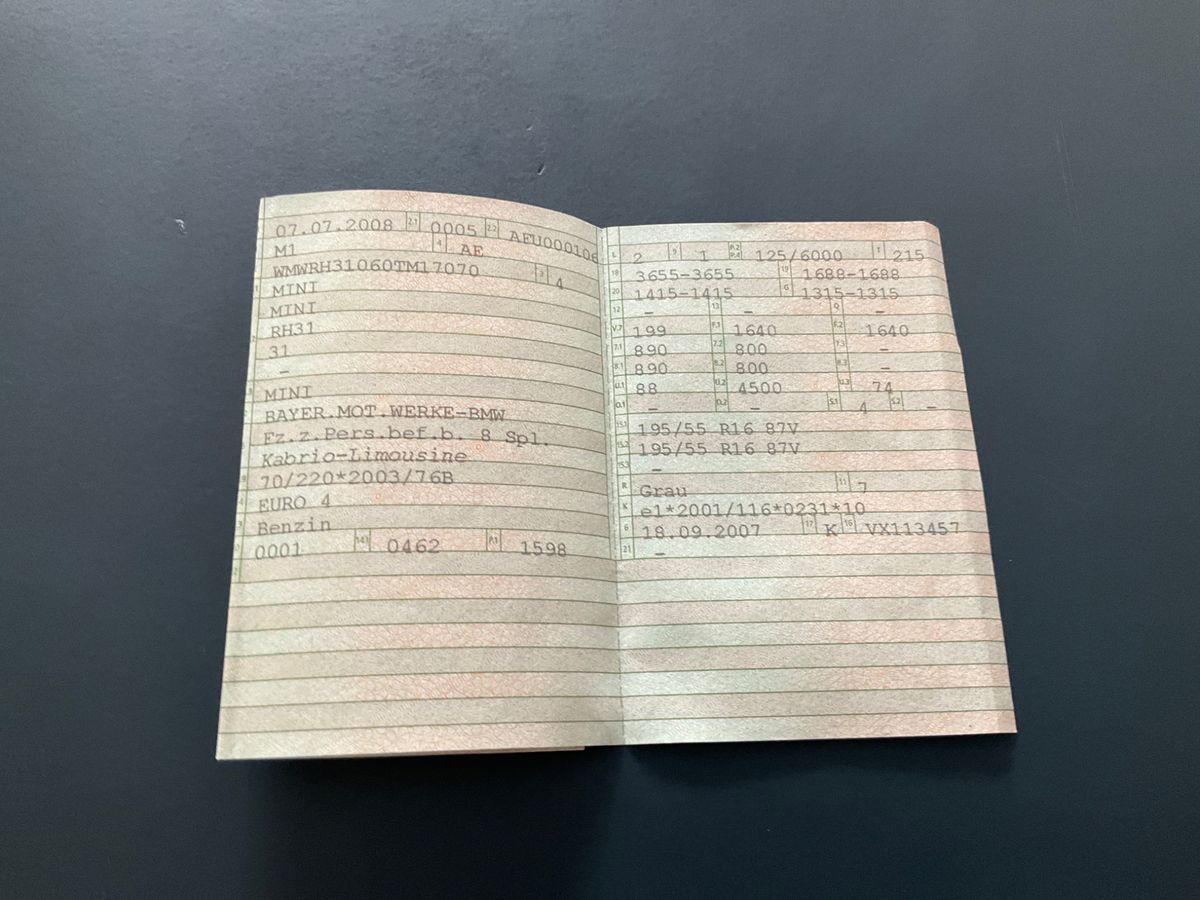 07.07.2008 2.1 0005 2.2 AFU000106
M1 4 AE
WMWRH31060TM17070 3 4
MINI
MINI
RH31
31
–
MINI
BAYER.MOT.WERKE-BMW
Fz.z.Pers.bef.b. 8 Spl.
Kabrio-Limousine
70/220*2003/76B
EURO 4
Benzin
0001 14.1 0462 P.1 1598
L 2 9 1 P.2 P.4 125/6000 T 215
18 3655-3655 19 1688-1688
20 1415-1415 G 1315-1315
12 – 13 – Q –
V.7 199 F.1 1640 F.2 1640
7.1 890 7.2 800 7.3 –
8.1 890 8.2 800 8.3 –
U.1 88 U.2 4500 U.3 74
O.1 – O.2 – S.1 4 S.2 –
15.1 195/55 R16 87V
15.2 195/55 R16 87V
15.3 –
R Grau 11 7
K e1*2001/116*0231*10
6 18.09.2007 17 K 16 VX113457
21 –